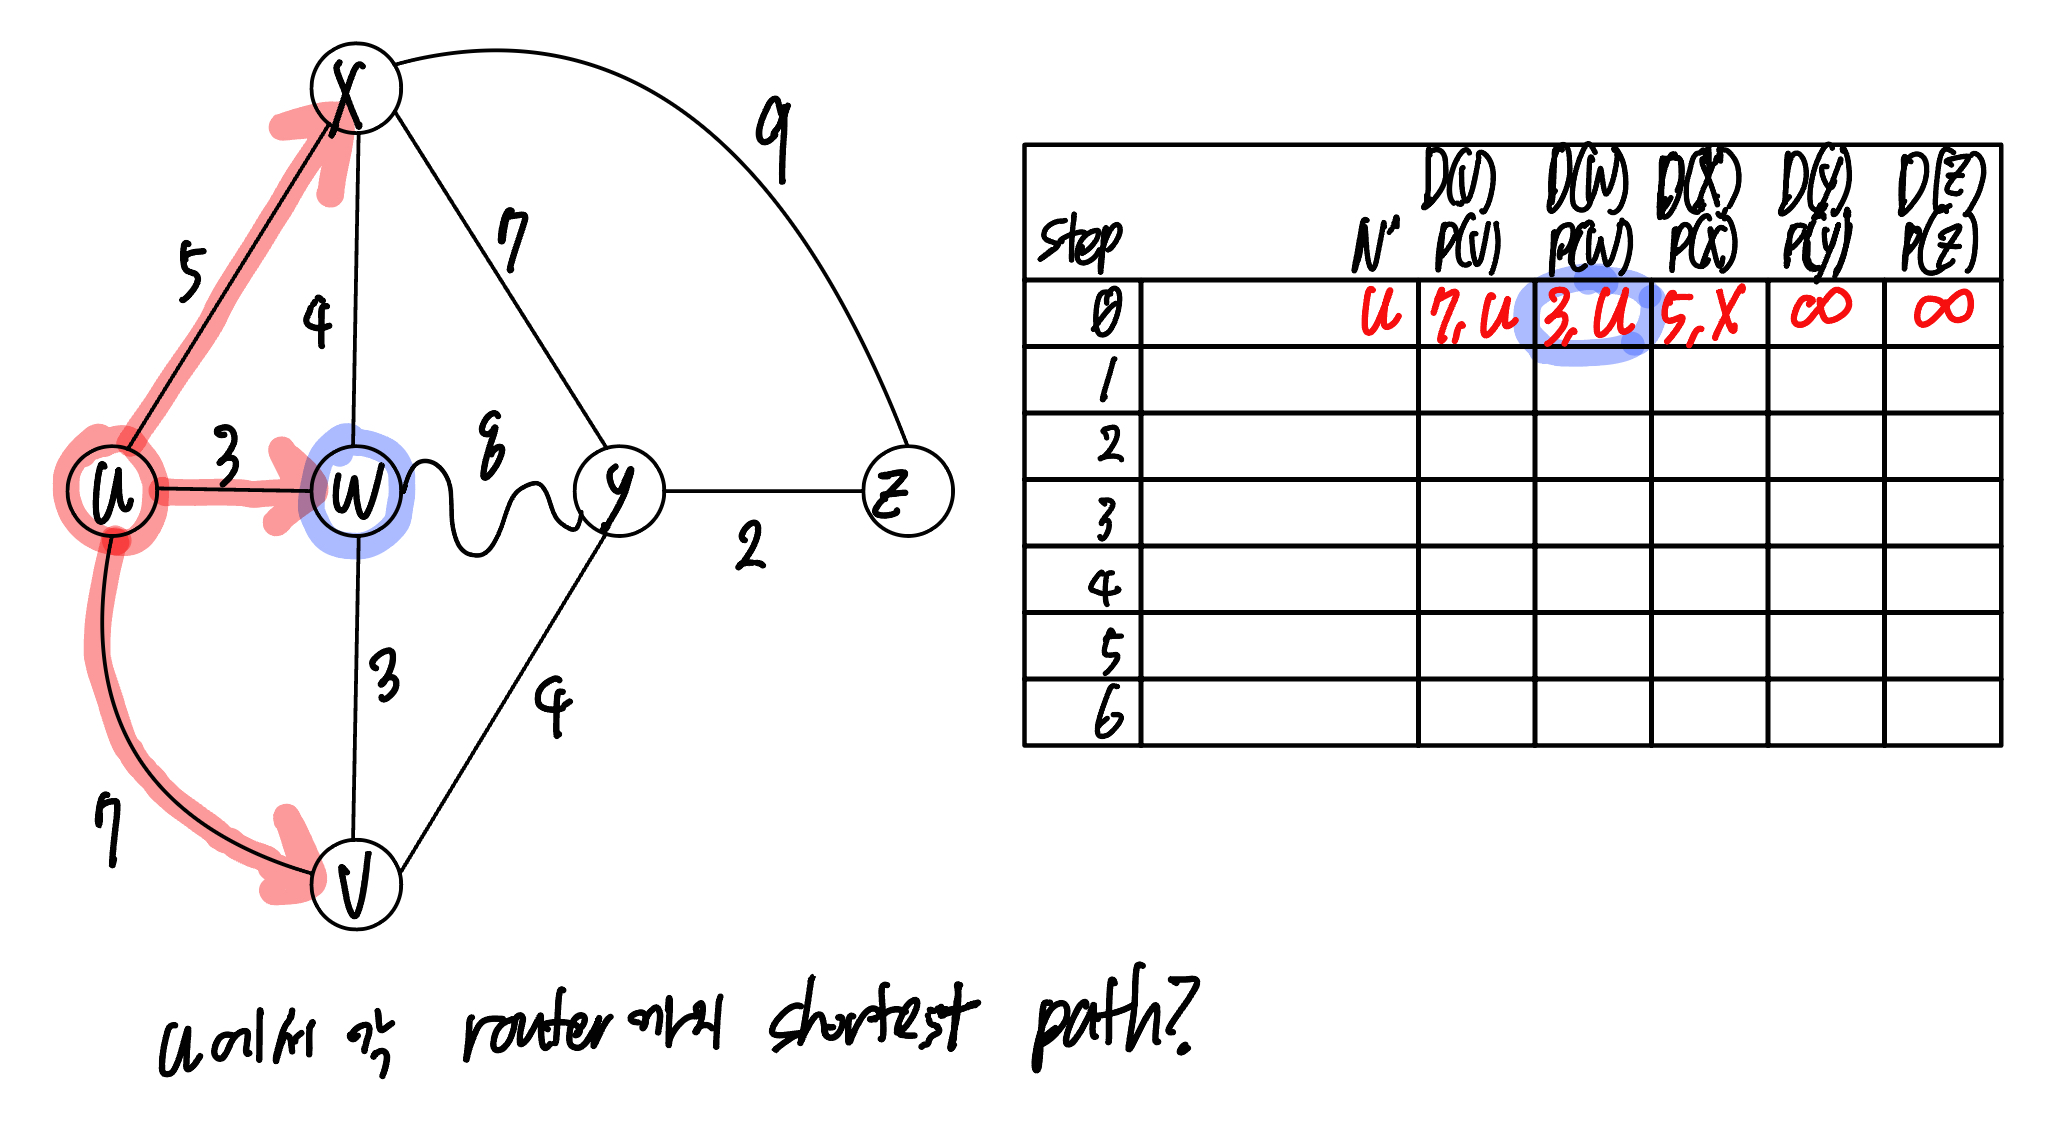 X
9
5
7
4
3
8
U
W
y
Z
2
3
4
7
V
Step N' D(V) P(V) D(W) P(W) D(X) P(X) D(y) P(y) D(Z) P(Z)
0 U 7,U 3,U 5,X ∞ ∞
1
2
3
4
5
6
U에서 각 router까지 shortest path?